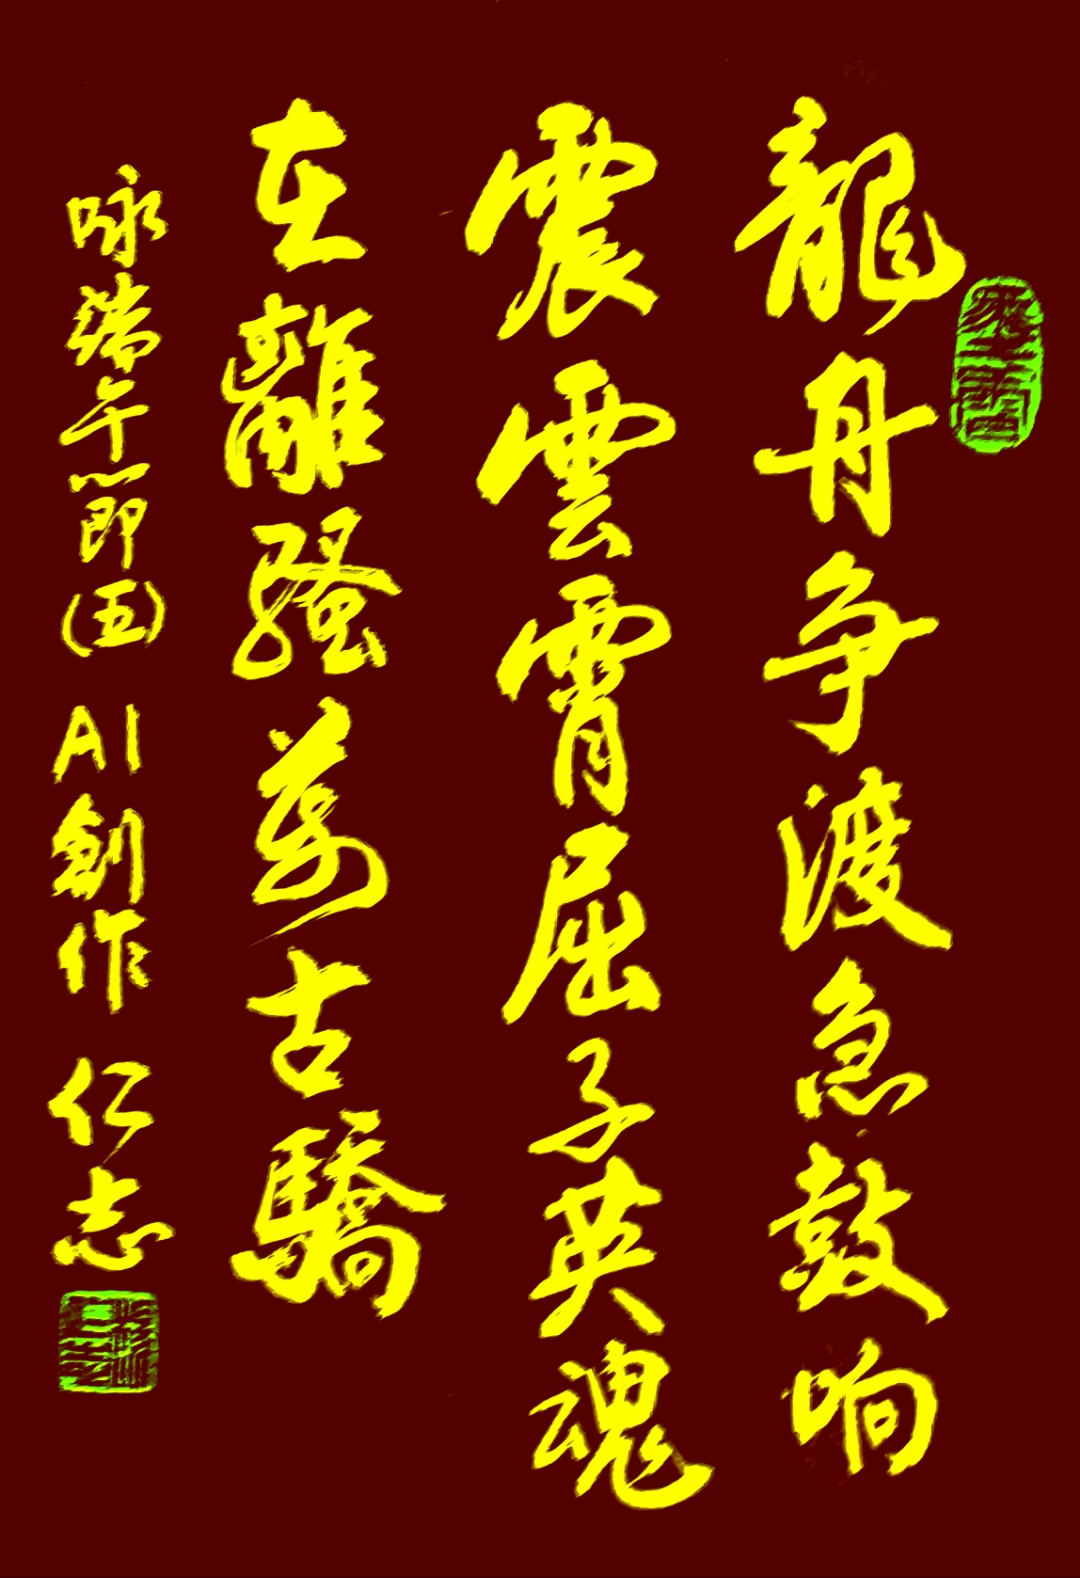 龍舟争渡急鼓响
震雲霄屈子英魂
在離騷萬古驕
咏端午節(五) AI創作 仁志